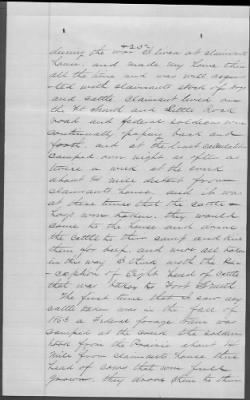 during the war I lived at claimants
house. and made my home there
all the time and was well acquain
ted with claimants stock of hogs
and cattle. Claimant lived on
the Ft Smith and Little Rock
road and federal soldiers were
continually passing back and
forth. and at the least calculation
camped over night as often as
twice a week at the creek
about ¼ mile distant from
claimants house. and it was
at these times that the cattle &
hogs were taken. they would
come to the house and drive
the cattle to their camp and kill
them for beef, and were all taken
in this way I think with the ex
ception of Eight head of cattle
that was taken to Fort Smith
The first time that I saw any
cattle taken was in the fall of
1863 a Federal forage train was
camped at the creek the soldiers
took from the Prairie about ¼
mile from claimants house three
head of cows that were full
grown. they drove them to their